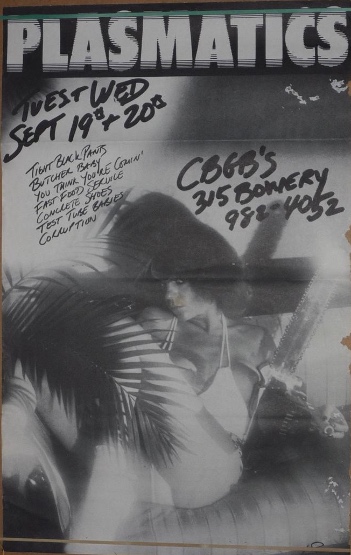 PLASMATICS
TUES & WED
SEPT 19th + 20th
TIGHT BLACK PANTS
BUTCHER BABY
YOU THINK YOU'RE COMIN'
FAST FOOD SERVICE
CONCRETE SHOES
TEST TUBE BABIES
CORRUPTION
CBGB'S
315 BOWERY
982-4052